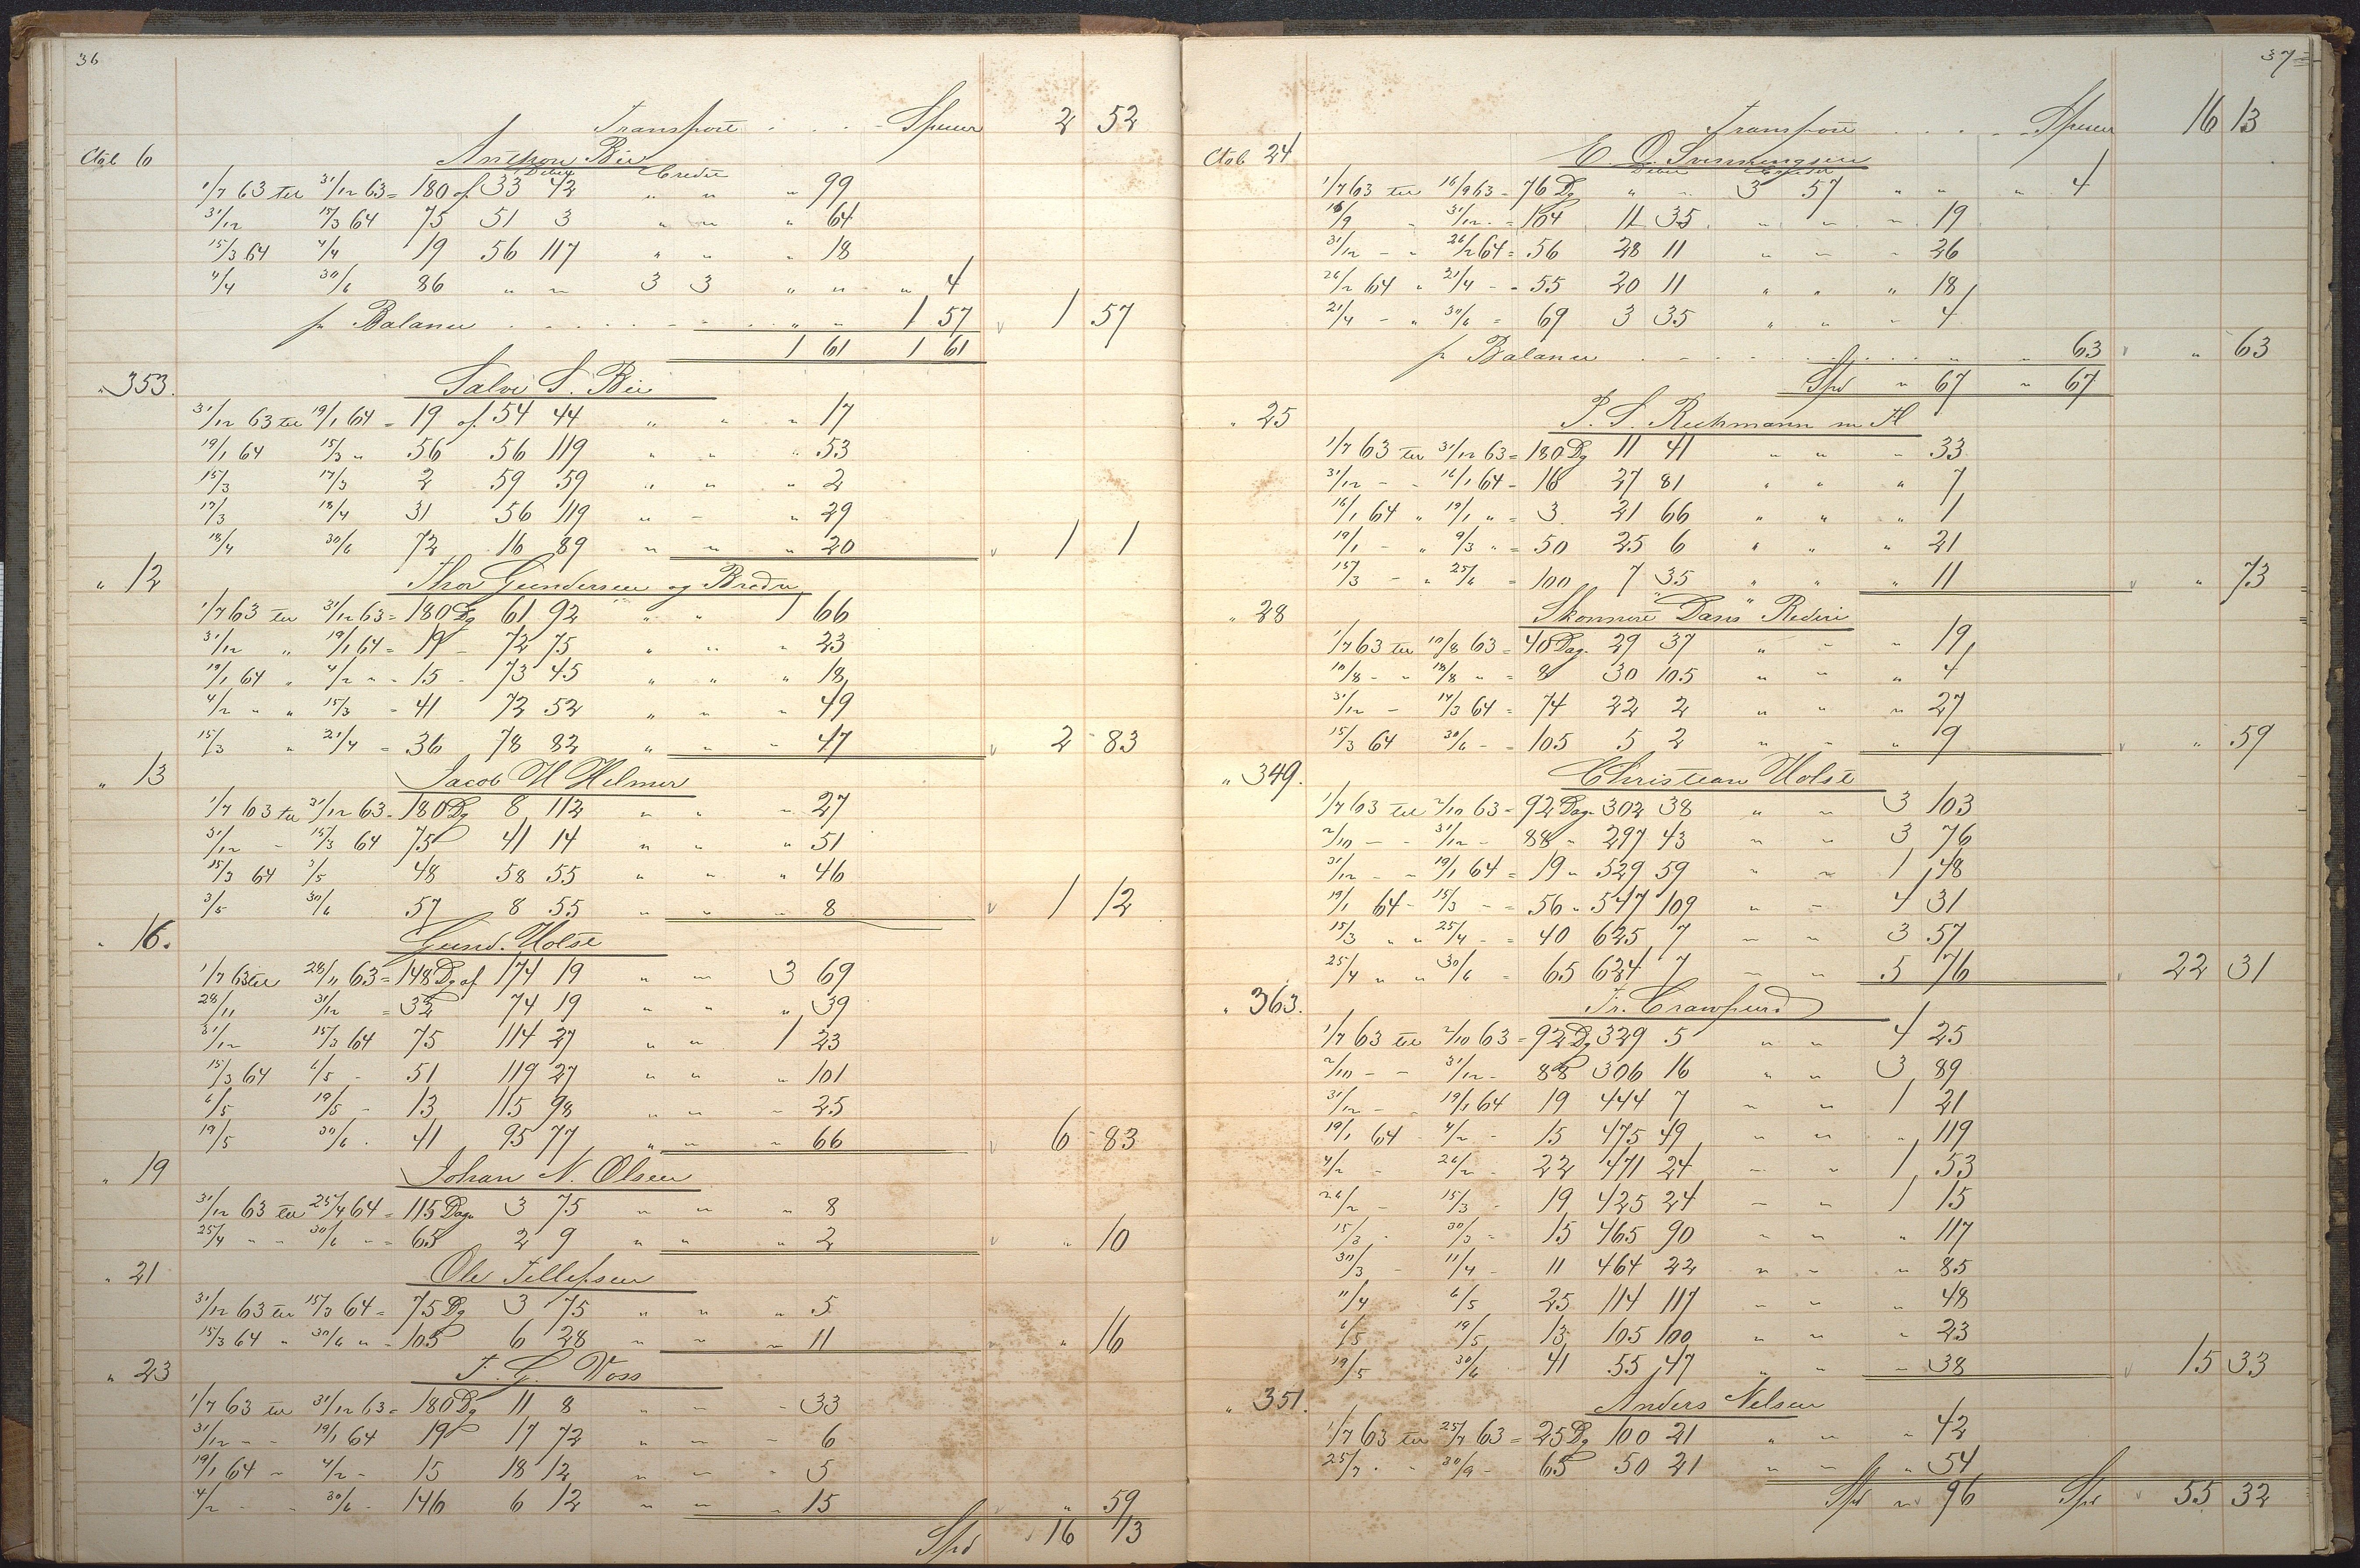 36
Transport . . . . Spcier 2 52
Ctab 6 Anthon Bie
Debet Credit
1/7 63 til 31/12 63 = 180 af 33 42 " " " 99
31/12 15/3 64 75 51 3 " " " 64
15/3 64 4/4 19 56 117 " " " 18
4/4 30/6 86 " " 3 3 " " " 4
pr Balance . . . . . " " 1 57 v 1 57
1 61 1 61
" 353. Salve S. Bie
31/12 63 til 19/1 64 = 19 af 54 44 " " " 17
19/1 64 15/3 " 56 56 119 " " " 53
15/3 17/3 2 59 59 " " " 2
17/3 18/4 31 56 119 " " " 29
18/4 30/6 72 16 89 " " " 20 v 1 1
" 12 Thor Gundersen og Brødre
1/7 63 til 31/12 63 = 180 Dg 61 92 " " 1 66
31/12 " 19/1 64 = 19 - 72 75 " " " 23
19/1 64 " 4/2 " - 15 - 73 45 " " " 18
4/2 " " 15/3 - 41 72 52 " " " 49
15/3 " 21/4 = 36 78 82 " " " 47 v 2 83
" 13 Jacob H Helmer
1/7 63 til 31/12 63 - 180 Dg 8 112 " " " 27
31/12 - 15/3 64 75 41 14 " " " 51
15/3 64 3/5 48 58 55 " " " 46
3/5 30/6 57 8 55 " " " 8 v 1 12
" 16. Gund. Holst
1/7 63 til 28/11 63 = 148 Dg af 174 19 " " 3 69
28/11 31/12 = 32 74 19 " " " 39
31/12 15/3 64 75 114 27 " " 1 23
15/3 64 6/5 - 51 119 27 " " " 101
6/5 19/5 - 13 115 98 " " " 25
19/5 30/6 . 41 95 77 " " " 66 v 6 83
" 19 Johan N. Olsen
31/12 63 til 25/4 64 = 115 Dag 3 75 " " " 8
25/4 - - 30/6 - = 65 2 9 " " " 2 v " 10
" 21 Ole Tellefsen
31/12 63 til 15/3 64 = 75 Dg 3 75 " " " 5
15/3 64 " 30/6 " = 105 6 28 " " " 11 " 16
" 23 T. G. Voss
1/7 63 til 31/12 63 = 180 Dg 11 8 " " " 33
31/12 - - 19/1 64 19 17 72 " " " 6
19/1 64 - 4/2 - 15 18 12 " " " 5
4/2 - - 30/6 - 146 6 12 " " " 15 " 59
Spd v 16 13
37
Transport . . . . Spcier 16 13
Ctab 24 E. O. Svenningsen
Debet Credit
1/7 63 til 16/9 63 = 76 Dg " " 3 57 " " " 4
16/9 - 31/12 - = 104 11 35 " " " 19
31/12 - - 26/2 64 = 56 28 11 " " " 26
26/2 64 " 21/4 - = 55 20 11 " " " 18
21/4 - " 30/6 = 69 3 35 " " " 4
pr Balance . . . . . " " 63 v " 63
Spd " 67 " 67
" 25 P. S. Reckmann m H
1/7 63 til 31/12 63 = 180 Dg 11 41 " " " 33
31/12 - - 16/1 64 - 16 27 81 " " " 7
16/1 64 " 19/1 " = 3 21 66 " " " 1
19/1 - " 9/3 " = 50 25 6 " " " 21
15/3 - " 25/6 = 100 7 35 " " " 11 v " 73
" 28 Skonnert "Dans" Rederi
1/7 63 til 10/8 63 = 40 Dag. 29 37 " " " 19
10/8 - " 18/8 " = 8 30 105 " " " 4
31/12 - 14/3 64 = 74 22 2 " " " 27
15/3 64 30/6 - = 105 5 2 " " " 9 v " 59
" 349. Christian Holst
1/7 63 til 2/10 63 = 92 Dag. 302 38 " " 3 103
2/10 - - 31/12 - 88 - 297 43 " " 3 76
31/12 - - 19/1 64 = 19 " 529 59 " " 1 48
19/1 64 - 15/3 - = 56 " 547 109 " " 4 31
15/3 " " 25/4 - = 40 625 7 " " 3 57
25/4 " " 30/6 = 65 624 7 " " 5 76 v 22 31
" 363. Fr. Crawfurd
1/7 63 til 2/10 63 = 92 Dg 329 5 " " 4 25
2/10 - - 31/12 - 88 306 16 " " 3 89
31/12 - . 19/1 64 19 444 7 " " 1 21
19/1 64 - 4/2 - 15 475 49 " " " 119
4/2 - 26/2 - 22 471 24 " " 1 53
26/2 - 15/3 - 19 425 24 " " 1 15
15/3 . 30/3 - 15 465 90 " " " 117
30/3 - 11/4 - 11 464 22 " " " 85
11/4 6/5 25 114 117 " " " 48
6/5 19/5 13 105 100 " " " 23
19/5 30/6 41 55 47 " " " 38 v 15 33
" 351. Anders Nelsen
1/7 63 til 25/7 63 = 25 Dg 100 21 " " " 42
25/7 . - 30/9 - 65 50 21 " " " 54
Spd " 96 Spd v 55 32